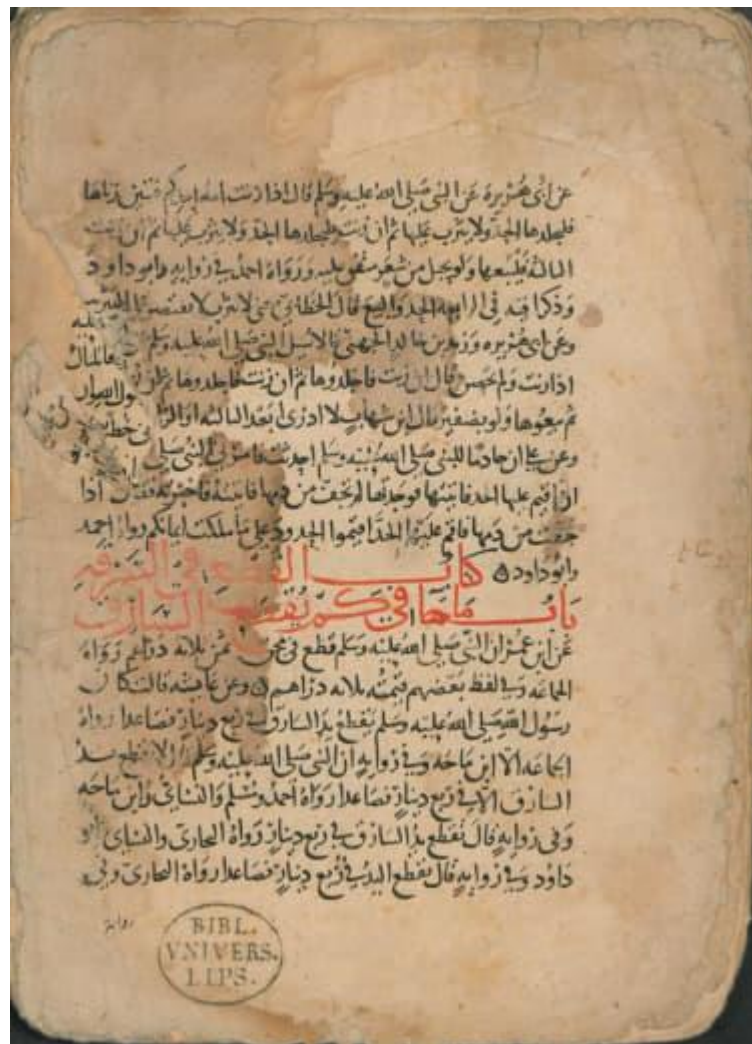 عن أبي هريرة عن النبي صلى الله عليه وسلم قال اذا زنت امة احدكم فتبين زناها
فليجلدها الحد ولا يثرب عليها ثم ان زنت فليجلدها الحد ولا يثرب عليها ثم ان زنت
الثالثة فليبعها ولو بحبل من شعر متفق عليه ورواه احمد في رواية وابو داود
وذكرا فيه في الرابعة الحد والبيع قال الخطابي معنى لا يثرب لا يقتصر
وعن ابي هريرة وزيد بن خالد الجهني قالا سئل النبي صلى الله عليه وسلم
اذا زنت ولم تحصن قال ان زنت فاجلدوها ثم ان زنت فاجلدوها ثم ان
ثم بيعوها ولو بضفير قال ابن شهاب لا ادري ابعد الثالثة او
وعن علي ان خادما للنبي صلى الله عليه وسلم احدثت فامرني النبي صلى
ان اقيم عليها الحد فاتيتها فوجدتها لم تجف من دمها فاتيته فاخبرته فقال اذا
جفت من دمها فاقم عليها الحد اقيموا الحدود على ما ملكت ايمانكم رواه احمد
وابو داود كتاب القطع في السرقة
باب ما جاء في كم يقطع السارق
عن ابن عمر ان النبي صلى الله عليه وسلم قطع في مجن ثمنه ثلاثة دراهم رواه
الجماعة وفي لفظ بعضهم قيمته ثلاثة دراهم وعن عائشة قالت كان
رسول الله صلى الله عليه وسلم يقطع يد السارق في ربع دينار فصاعدا رواه
الجماعة الا ابن ماجه وفي رواية ان النبي صلى الله عليه وسلم قال لا تقطع يد
السارق الا في ربع دينار فصاعدا رواه احمد ومسلم والنسائي وابن ماجه
وفي رواية قال تقطع يد السارق في ربع دينار رواه البخاري والنسائي وابو
داود وفي رواية قال تقطع اليد في ربع دينار فصاعدا رواه البخاري وفي
رواية
BIBL.
VNIVERS.
LIPS.